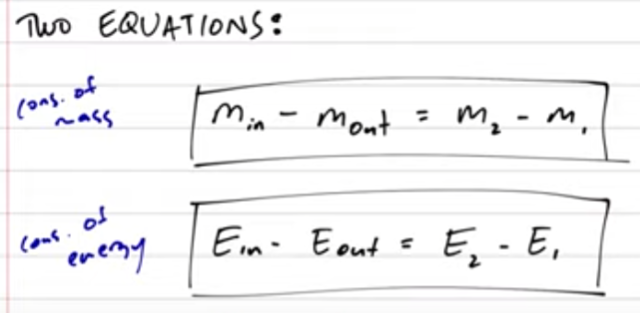 TWO EQUATIONS:
cons. of mass
m_in - m_out = m_2 - m_1
cons. of energy
E_in - E_out = E_2 - E_1